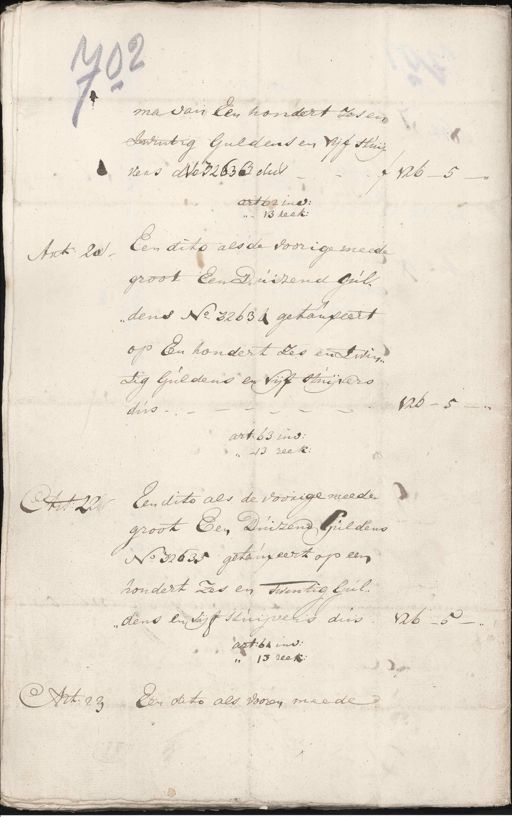 702
ma van Een hondert Zes en
twintig Guldens en vijf stuij
vers dus f 126 - 5 -
art: 62 inv:
„ 13 reek:
Art: 21 Een dito als de voorige meede
groot Een Duizend Gul.
„dens No 32634 getauxeert
op Een hondert Zes en Twin„
tig Guldens en vijf stuijvers
dus - - - - - - 126 - 5 - „
art: 63 inv:
„ 13 reek:
Art: 22 Een dito als de voorige meede
groot Een Duizend Guldens
No 32635 getauxeert op een
hondert Zes en Twintig Gul.
„dens en vijf stuijvers dus . 126 - 5 - „
art: 64 inv:
„ 13 reek:
Art: 23 Een dito als vooren meede